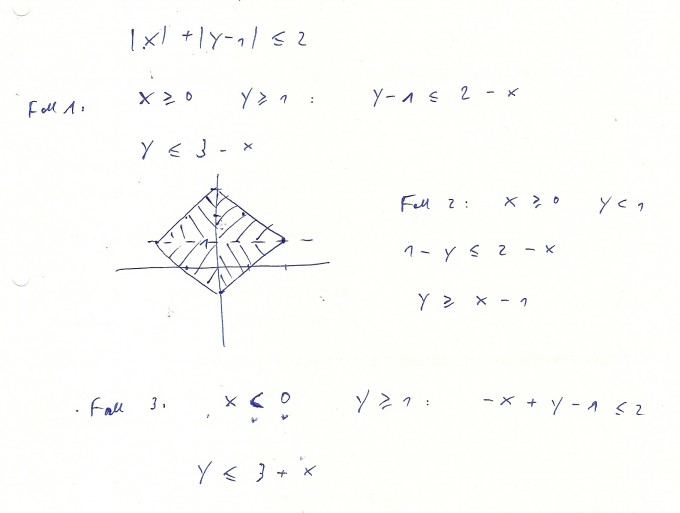 |x| + |y-1| ≤ 2
Fall 1: x ≥ 0 y ≥ 1 : y-1 ≤ 2 - x
y ≤ 3 - x
1
Fall 2: x ≥ 0 y < 1
1 - y ≤ 2 - x
y ≥ x - 1
Fall 3. x < 0 y ≥ 1 : -x + y - 1 ≤ 2
y ≤ 3 + x